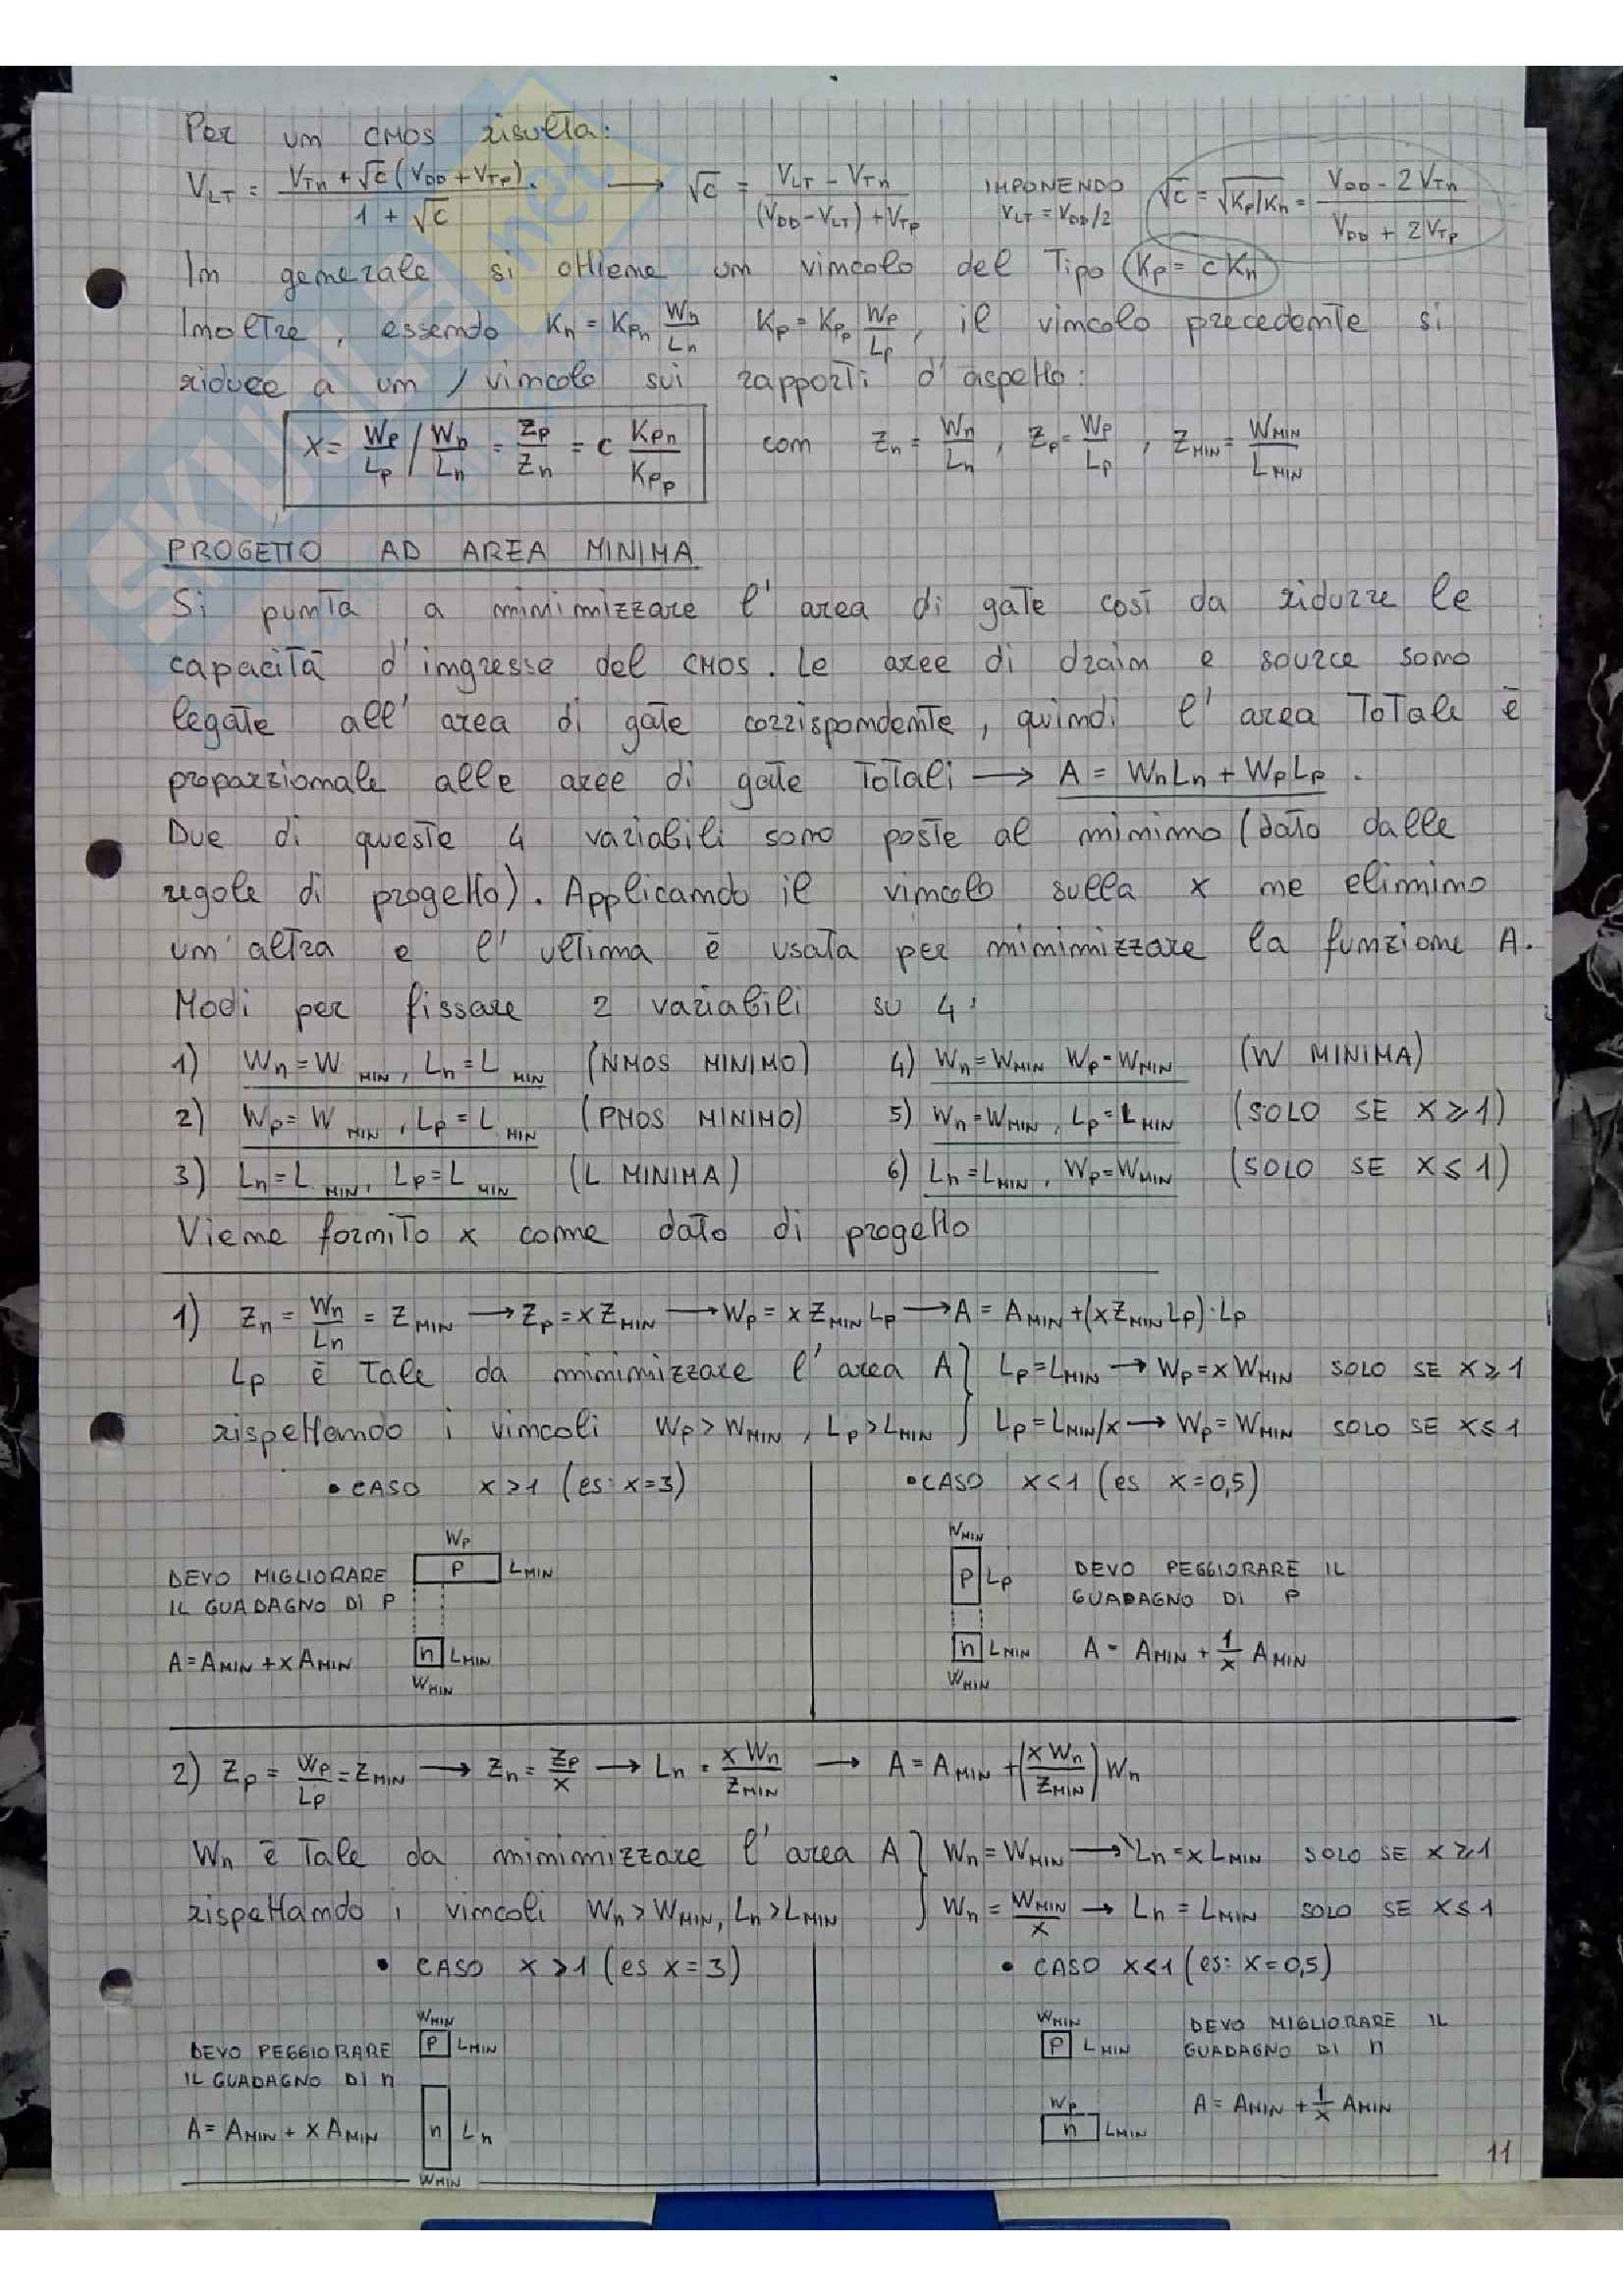 Per un CMOS risulta:
V_LT = (V_Tn + √c (V_DD + V_Tp)) / (1 + √c) → √c = (V_LT - V_Tn) / ((V_DD - V_LT) + V_Tp) IMPONENDO V_LT = V_DD/2 √c = √(Kp/Kn) = (V_DD - 2V_Tn) / (V_DD + 2V_Tp)
In generale si ottiene un vincolo del tipo Kp = c Kn
Inoltre, essendo Kn = K_Pn Wn/Ln Kp = K_Pp Wp/Lp, il vincolo precedente si
riduce a un vincolo sui rapporti d'aspetto:
x = Wp/Lp / Wn/Ln = Zp/Zn = c K_Pn/K_Pp con Zn = Wn/Ln, Zp = Wp/Lp, Z_MIN = W_MIN/L_MIN
PROGETTO AD AREA MINIMA
Si punta a minimizzare l'area di gate così da ridurre le
capacità d'ingresse del CMOS. Le aree di drain e source sono
legate all'area di gate corrispondente, quindi l'area totale è
proporzionale alle aree di gate totali → A = WnLn + WpLp.
Due di queste 4 variabili sono poste al minimo (dato dalle
regole di progetto). Applicando il vincolo sulla x ne elimino
un'altra e l'ultima è usata per minimizzare la funzione A.
Modi per fissare 2 variabili su 4:
1) Wn = W_MIN, Ln = L_MIN (NMOS MINIMO) 4) Wn = W_MIN Wp = W_MIN (W MINIMA)
2) Wp = W_MIN, Lp = L_MIN (PMOS MINIMO) 5) Wn = W_MIN, Lp = L_MIN (SOLO SE X ≥ 1)
3) Ln = L_MIN, Lp = L_MIN (L MINIMA) 6) Ln = L_MIN, Wp = W_MIN (SOLO SE X ≤ 1)
Viene fornito x come dato di progetto
1) Zn = Wn/Ln = Z_MIN → Zp = x Z_MIN → Wp = x Z_MIN Lp → A = A_MIN + (x Z_MIN Lp)·Lp
Lp è tale da minimizzare l'area A } Lp = L_MIN → Wp = x W_MIN SOLO SE X ≥ 1
rispettando i vincoli Wp > W_MIN, Lp > L_MIN } Lp = L_MIN/x → Wp = W_MIN SOLO SE X ≤ 1
• CASO x > 1 (es: x = 3)
Wp
DEVO MIGLIORARE P L_MIN
IL GUADAGNO DI P
A = A_MIN + x A_MIN n L_MIN
W_MIN
• CASO x < 1 (es x = 0,5)
W_MIN
P Lp DEVO PEGGIORARE IL
GUADAGNO DI P
n L_MIN A = A_MIN + 1/x A_MIN
W_MIN
2) Zp = Wp/Lp = Z_MIN → Zn = Zp/x → Ln = x Wn/Z_MIN → A = A_MIN + (x Wn/Z_MIN) Wn
Wn è tale da minimizzare l'area A } Wn = W_MIN → Ln = x L_MIN SOLO SE X ≥ 1
rispettando i vincoli Wn > W_MIN, Ln > L_MIN } Wn = W_MIN/x → Ln = L_MIN SOLO SE X ≤ 1
• CASO x > 1 (es x = 3)
W_MIN
DEVO PEGGIORARE P L_MIN
IL GUADAGNO DI n
A = A_MIN + x A_MIN n Ln
W_MIN
• CASO x < 1 (es: x = 0,5)
W_MIN DEVO MIGLIORARE IL
P L_MIN GUADAGNO DI n
Wp A = A_MIN + 1/x A_MIN
n L_MIN
11